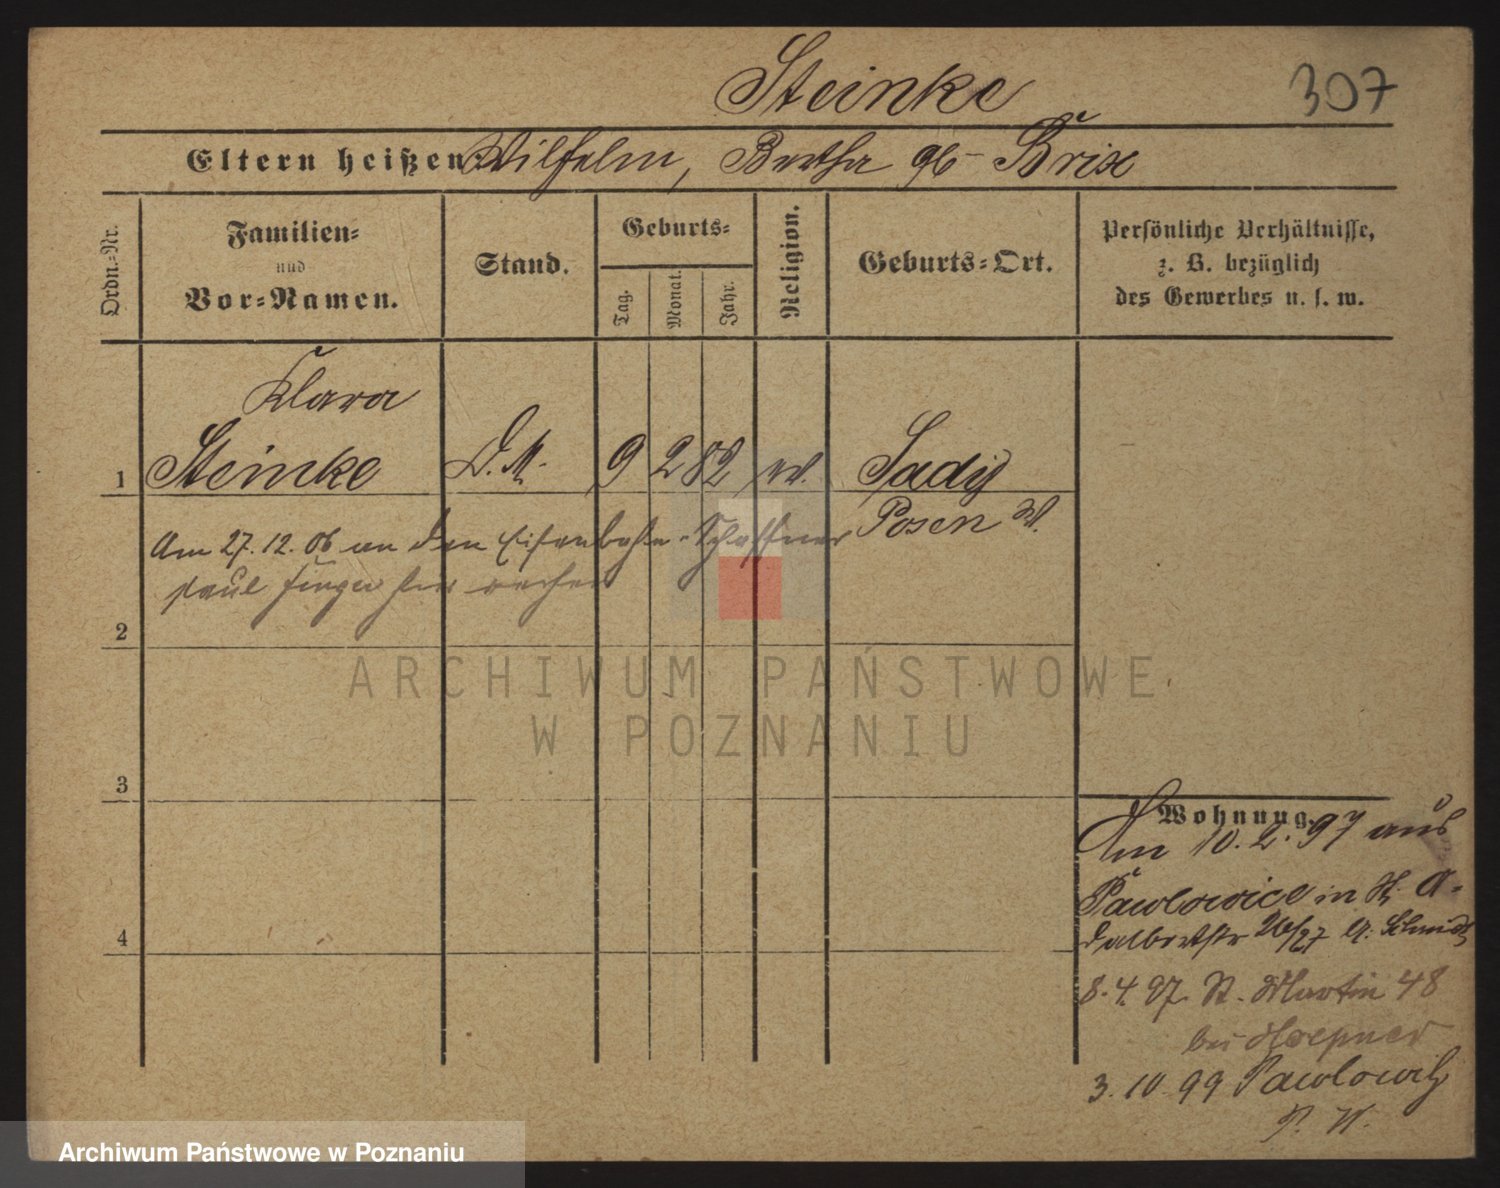 Steinke
307
Eltern heißen: Wilhelm, Bertha gb Brix
Ordn.-Nr.
Familien-
und
Vor-Namen.
Stand.
Geburts-
Tag.
Monat.
Jahr.
Religion.
Geburts-Ort.
Persönliche Verhältnisse,
z. B. bezüglich
des Gewerbes u. s. w.
Klara
1 Steinke D.M. 9 2 82 Sady
Posen W.
Am 27.12.06 an den Eisenbahn-Schaffner
Paul
2
3
4
Wohnung.
Am 10.2.97 aus
Pawlowice in St. A-
dalbertstr 26/27 b. Schmidt
8.4.97. St. Martin 48
bei Hoepner
3.10.99 Pawlowitz
P. W.
ARCHIWUM PAŃSTWOWE
W POZNANIU
Archiwum Państwowe w Poznaniu